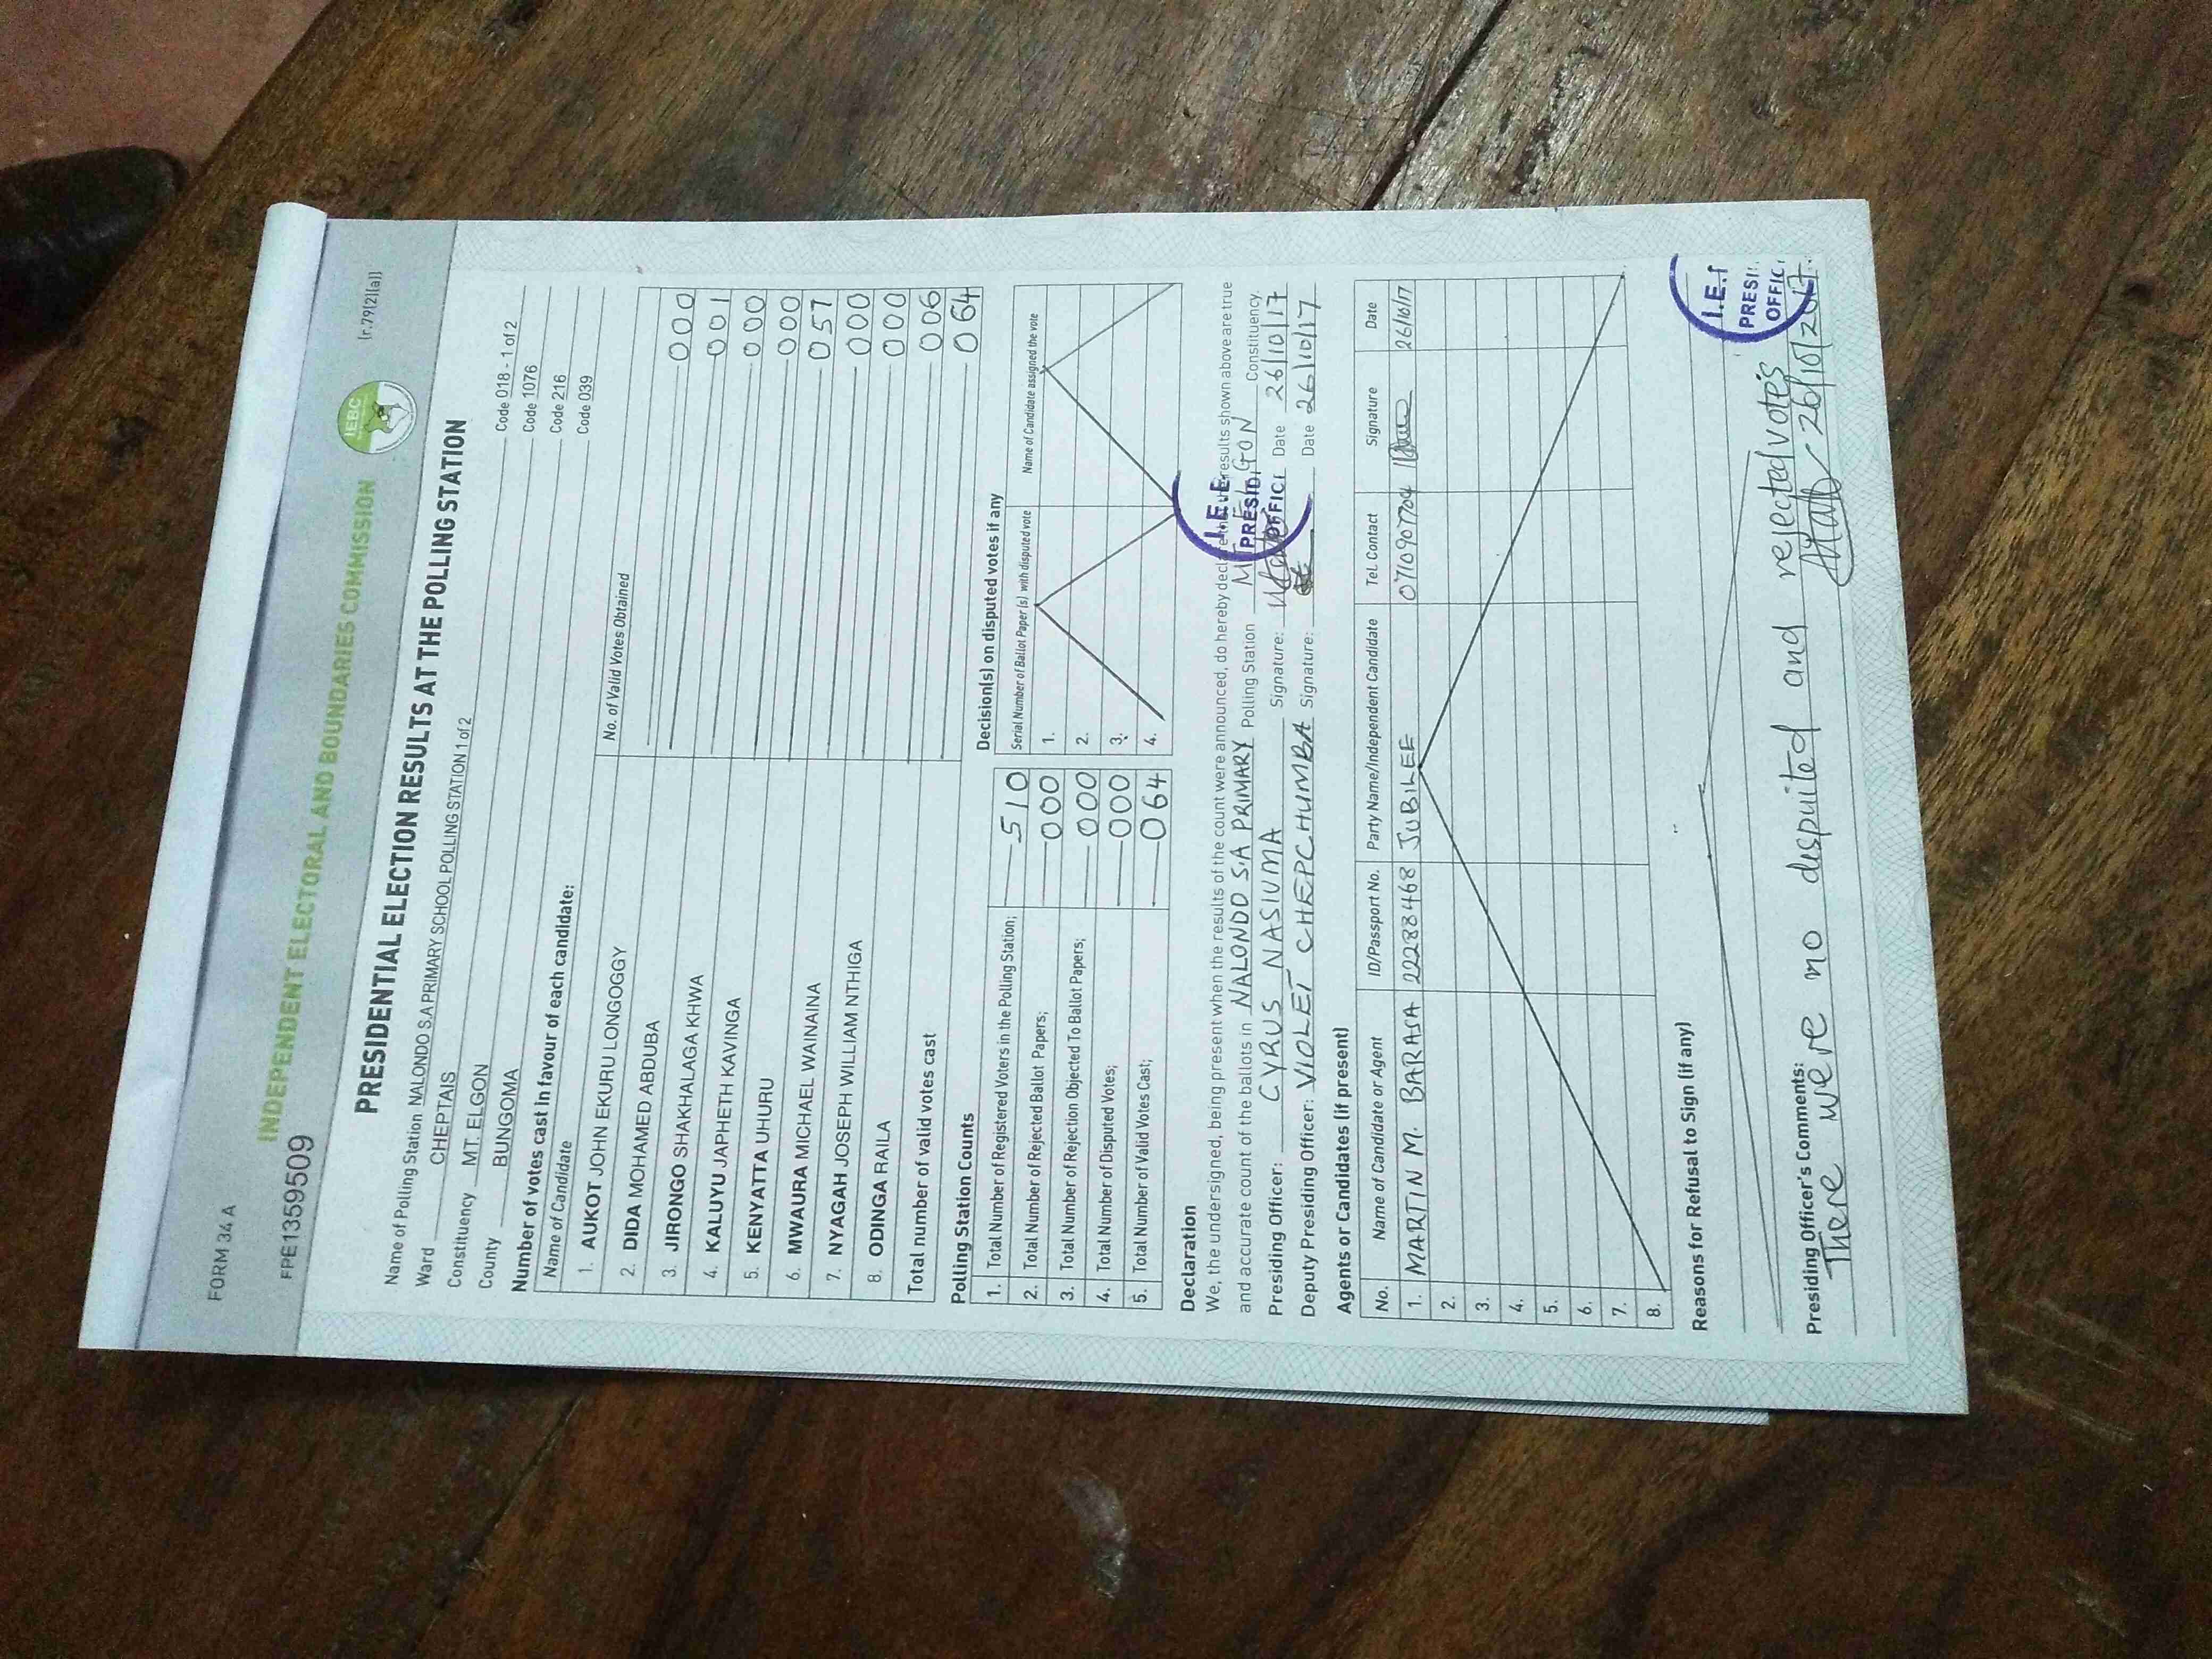 FORM 34 A
(r.79(2)(a))
FPE1359509
INDEPENDENT ELECTORAL AND BOUNDARIES COMMISSION
IEBC
PRESIDENTIAL ELECTION RESULTS AT THE POLLING STATION
Name of Polling Station NALONDO S.A PRIMARY SCHOOL POLLING STATION 1 of 2 Code 018 - 1 of 2
Ward CHEPTAIS Code 1076
Constituency MT. ELGON Code 216
County BUNGOMA Code 039
Number of votes cast in favour of each candidate:
Name of Candidate No. of Valid Votes Obtained
1. AUKOT JOHN EKURU LONGOGGY 000
2. DIDA MOHAMED ABDUBA 001
3. JIRONGO SHAKHALAGA KHWA 000
4. KALUYU JAPHETH KAVINGA 000
5. KENYATTA UHURU 057
6. MWAURA MICHAEL WAINAINA 000
7. NYAGAH JOSEPH WILLIAM NTHIGA 000
8. ODINGA RAILA 006
Total number of valid votes cast 064
Polling Station Counts
1. Total Number of Registered Voters in the Polling Station; 510
2. Total Number of Rejected Ballot Papers; 000
3. Total Number of Rejection Objected To Ballot Papers; 000
4. Total Number of Disputed Votes; 000
5. Total Number of Valid Votes Cast; 064
Decision(s) on disputed votes if any
Serial Number of Ballot Paper(s) with disputed vote Name of Candidate assigned the vote
1.
2.
3.
4.
Declaration
We, the undersigned, being present when the results of the count were announced, do hereby declare that the results shown above are true
and accurate count of the ballots in NALONDO S.A PRIMARY Polling Station Constituency.
Presiding Officer: CYRUS NASIUMA Signature: Date 26/10/17
Deputy Presiding Officer: VIOLET CHEPCHUMBA Signature: Date 26/10/17
I.E.E
PRESIDI
OFFICE
Agents or Candidates (if present)
No. Name of Candidate or Agent ID/Passport No. Party Name/Independent Candidate Tel. Contact Signature Date
1. MARTIN M. BARASA 22288468 JUBILEE 0710907704 26/10/17
2.
3.
4.
5.
6.
7.
8.
Reasons for Refusal to Sign (if any)
Presiding Officer's Comments:
There were no dispuited and rejected votes
26/10/2017.
I.E.
PRESI
OFFIC